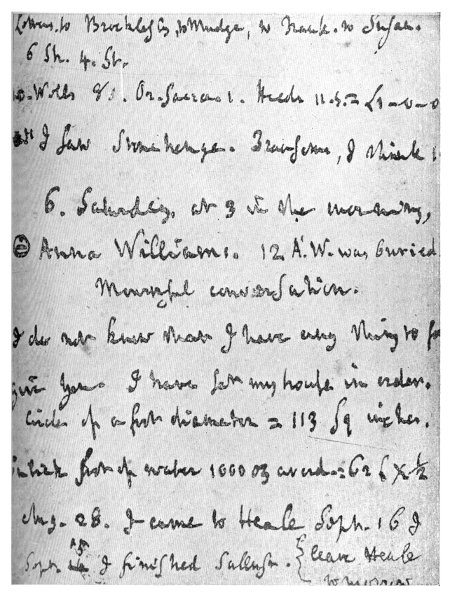 Letters to Brocklesby, to Mudge, to Frank. to Susan.
6 Sh. 4. St.
Wells Os. Sacra. 1. Heads 11.
I saw Stonehenge. I think
6. Saturday, at 3 in the morning,
Anna Williams. 12 A.W. was buried
Mournful conversation.
I do not know that I have any thing to for
give you. I have set my house in order.
Circle of a foot diameter = 113 sq inches.
foot of water 1000 oz averd. = 62 ½
Aug. 28. I came to Heale Sept. 16 I
Sept. 15 I finished Sallust. { leave Heale
to morrow